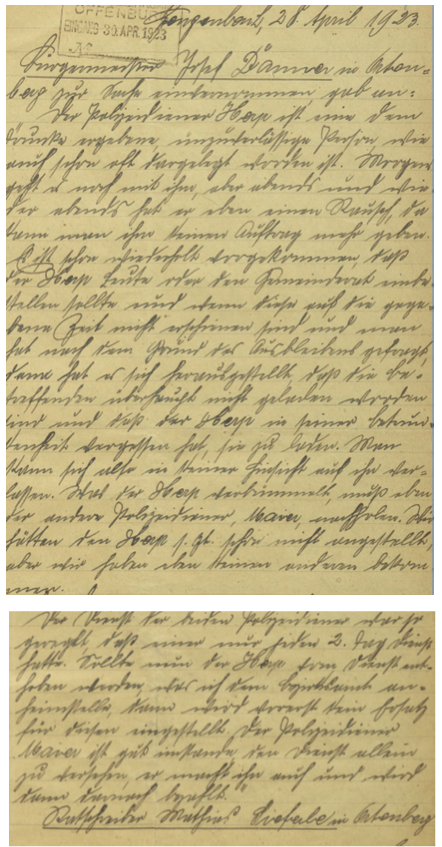 OFFENBURG
EINGANG 30. APR. 1923
Gengenbach, 28. April 1923.
Bürgermeister Josef Danner in Orten-
berg zur Sache einvernommen, gab an:
Der Polizeidiener Hess ist eine dem
Trunke ergebene, unzuverlässige Person, wie
auch schon oft dargelegt worden ist. Morgens
geht es noch mit ihm, aber abends und wie
der abends hat er eben einen Rausch, da
kann man ihm keinen Auftrag mehr geben.
Es ist schon wiederholt vorgekommen, daß
der Leute oder den Gemeinderat einbe-
stellen sollte und wenn diese auf die gege-
bene Zeit nicht erschienen sind und man
hat nach dem Grund des Ausbleibens gefragt,
dann hat es sich herausgestellt, daß die be-
treffenden überhaupt nicht geladen worden
sind und daß der in seiner betrun-
kenheit vergessen hat, sie zu laden. Man
kann sich also in keiner Hinsicht auf ihn ver-
lassen. Was der verbummelt, muß eben
der andere Polizeidiener, Maier, nachholen. Wir
hätten den s. Zt. schon nicht angestellt,
aber wir haben eben keinen anderen bekom
men.
Der Dienst der beiden Polizeidiener war so
geregelt, daß einer nur jeden 2. Tag Dienst
hatte. Sollte nun der vom Dienst ent-
hoben werden, was ich dem Bezirksamt an-
heimstelle, dann wird vorerst kein Ersatz
für diesen eingestellt. Der Polizeidiener
Maier ist gut imstande, den Dienst allein
zu versehen, er macht ihn auch und wird
dann darnach bezahlt.
Ratschreiber Mathias in Ortenberg